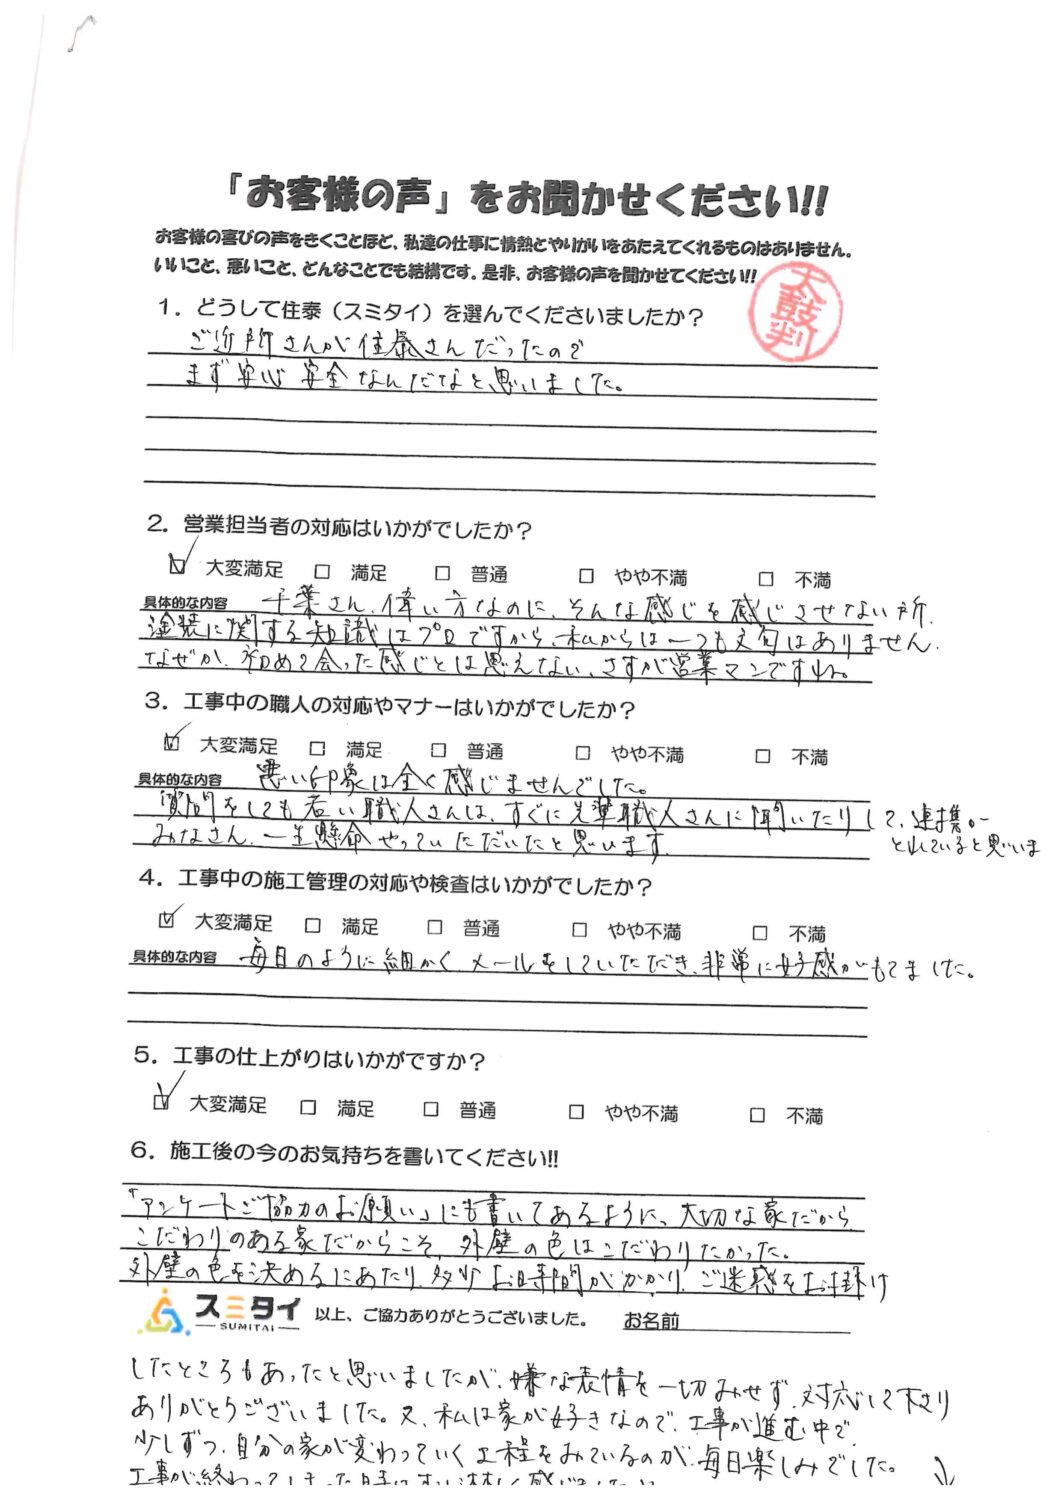 「お客様の声」をお聞かせください!!
お客様の喜びの声をきくことほど、私達の仕事に情熱とやりがいをあたえてくれるものはありません。
いいこと、悪いこと、どんなことでも結構です。是非、お客様の声を聞かせてください!!
太鼓判
1．どうして住泰（スミタイ）を選んでくださいましたか？
ご近所さんが住泰さんだったので
まず安心安全なんだなと思いました。
2．営業担当者の対応はいかがでしたか？
☑ 大変満足 □ 満足 □ 普通 □ やや不満 □ 不満
具体的な内容 千葉さん、偉い方なのに、そんな感じを感じさせない所、
塗装に関する知識はプロですから、私からは一つも文句はありません。
なぜか、初めて会った感じとは思えない、さすが営業マンですね。
3．工事中の職人の対応やマナーはいかがでしたか？
☑ 大変満足 □ 満足 □ 普通 □ やや不満 □ 不満
具体的な内容 悪い印象は全く感じませんでした。
質問をしても若い職人さんは、すぐに先輩職人さんに聞いたりして、連携が
とれていると思いま
みなさん、一生懸命やっていただいたと思います。
4．工事中の施工管理の対応や検査はいかがでしたか？
☑ 大変満足 □ 満足 □ 普通 □ やや不満 □ 不満
具体的な内容 毎日のように細かくメールをしていただき、非常に好感がもてました。
5．工事の仕上がりはいかがですか？
☑ 大変満足 □ 満足 □ 普通 □ やや不満 □ 不満
6．施工後の今のお気持ちを書いてください!!
「アンケートご協力のお願い」にも書いてあるように、大切な家だから
こだわりのある家だからこそ、外壁の色はこだわりたかった。
外壁の色を決めるにあたり、多少お時間がかかり、ご迷惑をお掛け
スミタイ SUMITAI 以上、ご協力ありがとうございました。 お名前
したところもあったと思いましたが、嫌な表情を一切みせず、対応して下さり
ありがとうございました。又、私は家が好きなので、工事が進む中で
少しずつ、自分の家が変わっていく工程をみているのが、毎日楽しみでした。
工事が終わってしまった時は